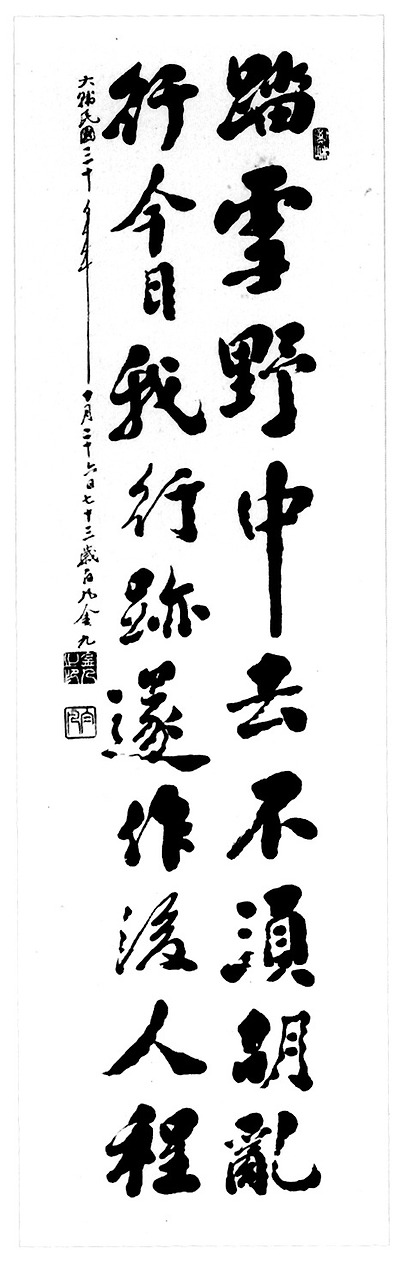 踏雪野中去不須胡亂
行今日我行跡遂作後人程
大韓民國三十年十月二十六日七十三歲白凡金九
金九之印
白凡